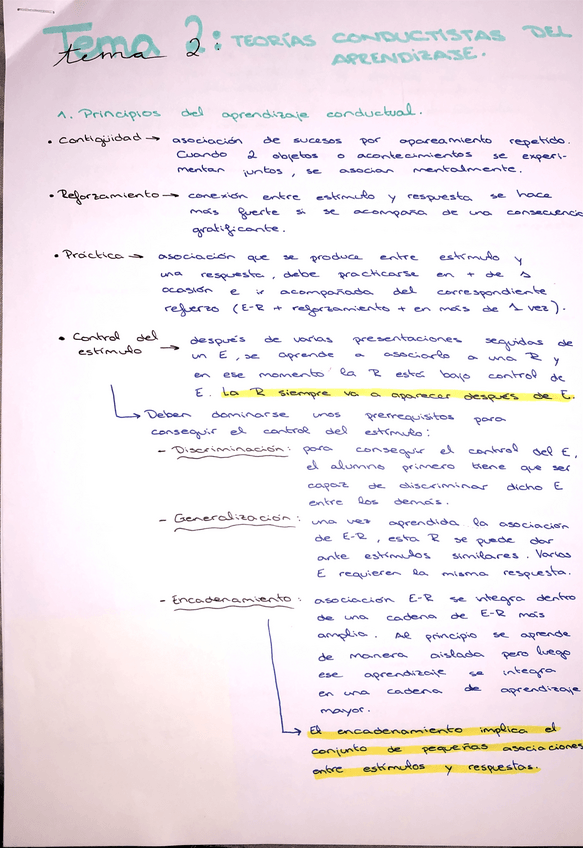 Tema 2: TEORÍAS CONDUCTISTAS DEL
tema 2
APRENDIZAJE.
1. Principios del aprendizaje conductual.
• Contigüidad → asociación de sucesos por apareamiento repetido.
Cuando 2 objetos o acontecimientos se experi-
mentan juntos, se asocian mentalmente.
• Reforzamiento → conexión entre estímulo y respuesta se hace
más fuerte si se acompaña de una consecuencia
gratificante.
• Práctica → asociación que se produce entre estímulo y
una respuesta, debe practicarse en + de 1
ocasión e ir acompañada del correspondiente
refuerzo (E-R + reforzamiento + en más de 1 vez).
• Control del estímulo → después de varias presentaciones seguidas de
un E, se aprende a asociarlo a una R y
en ese momento la R está bajo control de
E. La R siempre va a aparecer después de E.
→ Deben dominarse unos prerrequisitos para
conseguir el control del estímulo:
- Discriminación: para conseguir el control del E,
el alumno primero tiene que ser
capaz de discriminar dicho E
entre los demás.
- Generalización: una vez aprendida la asociación
de E-R, esta R se puede dar
ante estímulos similares. Varios
E requieren la misma respuesta.
- Encadenamiento: asociación E-R se integra dentro
de una cadena de E-R más
amplia. Al principio se aprende
de manera aislada pero luego
ese aprendizaje se integra
en una cadena de aprendizaje
mayor.
→ El encadenamiento implica el
conjunto de pequeñas asociaciones
entre estímulos y respuestas.